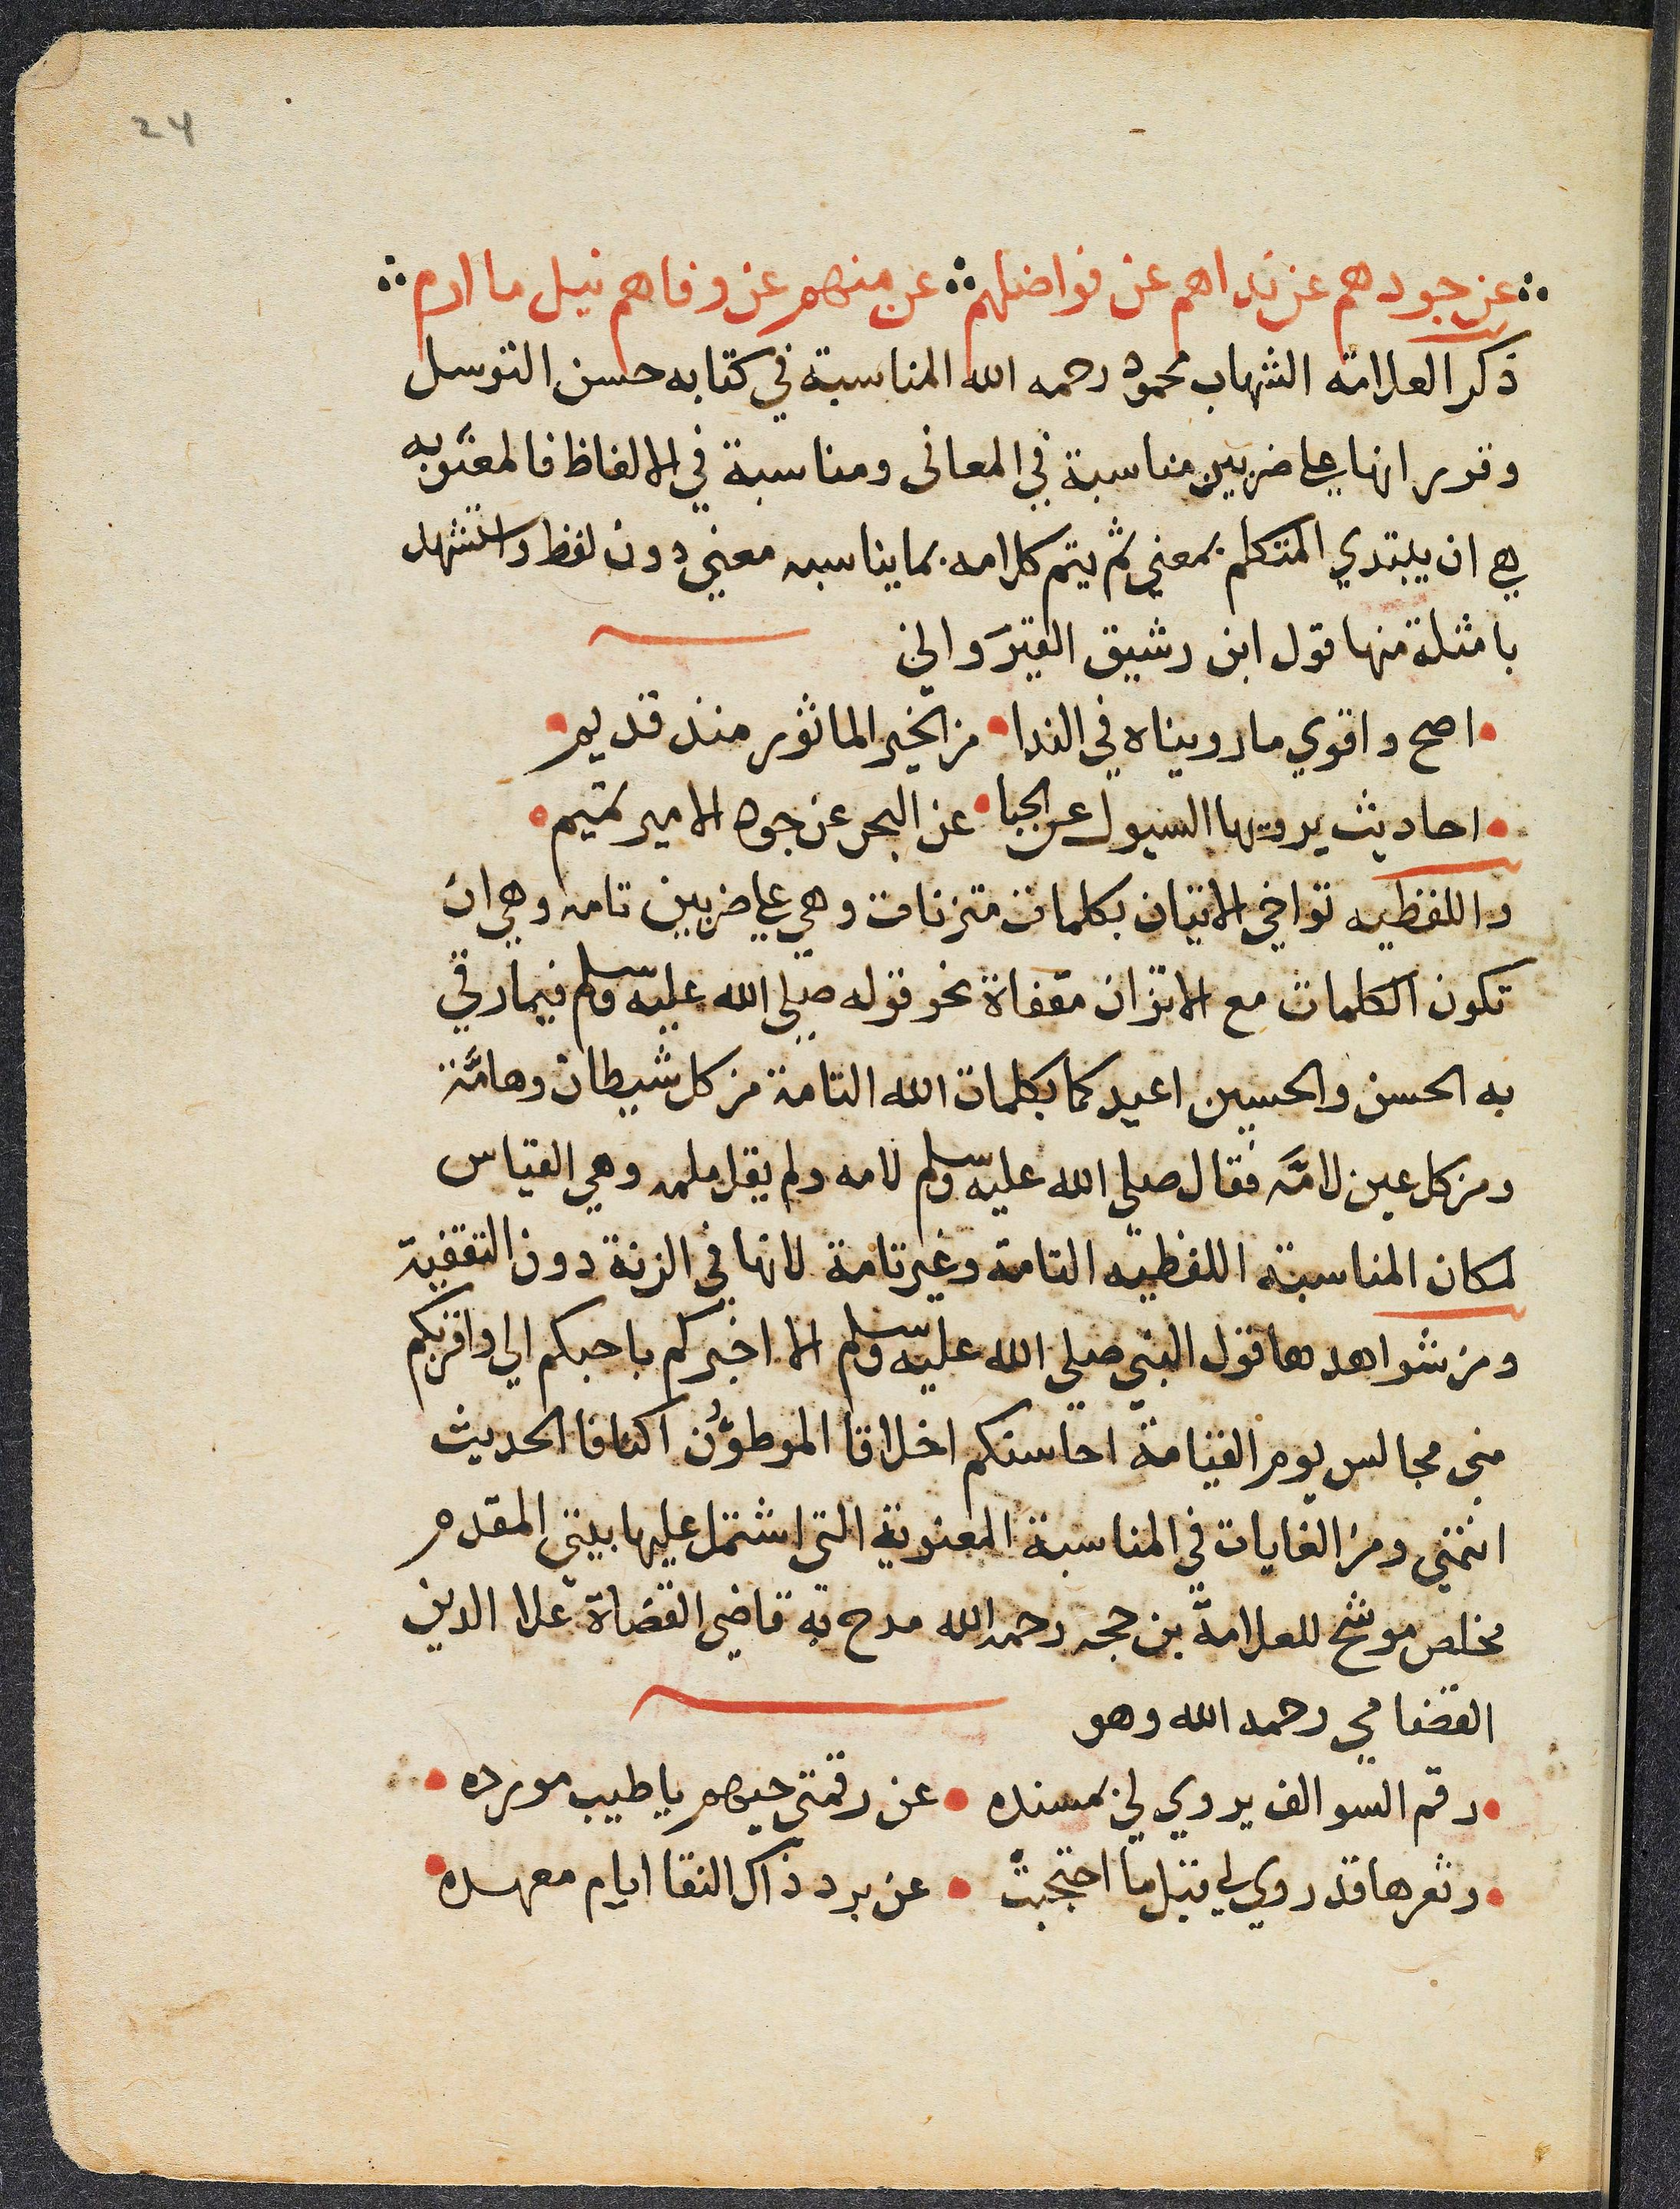 24
عن جودهم عن نداهم عن فواضلهم عن منهم عن وفاهم نيل ما ارم
ذكر العلامة الشهاب محمود رحمه الله المناسبة في كتابه حسن التوسل
وقرر انها على ضربين مناسبة في المعانى ومناسبة في الالفاظ فالمعنويه
هي ان يبتدي المتكلم بمعني ثم يتم كلامه بما يناسبه معني دون لفظ واستشهد
بامثلة منها قول ابن رشيق القيرَواني
اصح واقوي ما رويناه في الندا من الخير الماثور منذ قديم
احاديث يرويها السيول عن الحيا عن البحر عن جود الامير تميم
واللفظيه تواخي الاتيان بكلمات متزنات وهي على ضربين تامه وهي ان
تكون الكلمات مع الاتزان مقفاة نحو قوله صلى الله عليه وسلم فيما رقي
به الحسن والحسين اعيدكما بكلمات الله التامة من كل شيطان وهامَّة
ومن كل عين لامَّه فقال صلي الله عليه وسلم لامه ولم يقل ملمه وهي القياس
لمكان المناسبة اللفظيه التامة وغير تامة لانها في الزنة دون التقفية
ومن شواهدها قول النبي صلي الله عليه وسلم الا اخبركم باحبكم الي واقربكم
منى مجالس يوم القيامة احاسنكم اخلاقا الموطؤن اكنافا الحديث
انتهي ومن الغايات في المناسبة المعنوية التي اشتمل عليها بيتي المقدم
مخلص موشح للعلامة بن حجه رحمه الله مدح به قاضي القضاة علا الدين
القضامي رحمه الله وهو
رقم السوالف يروي لي بمسنده عن رقمتي حيهم يا طيب مورده
وثغرها قد روي لي قبل ما احتجبت عن برد ذاك النقا ايام معهده